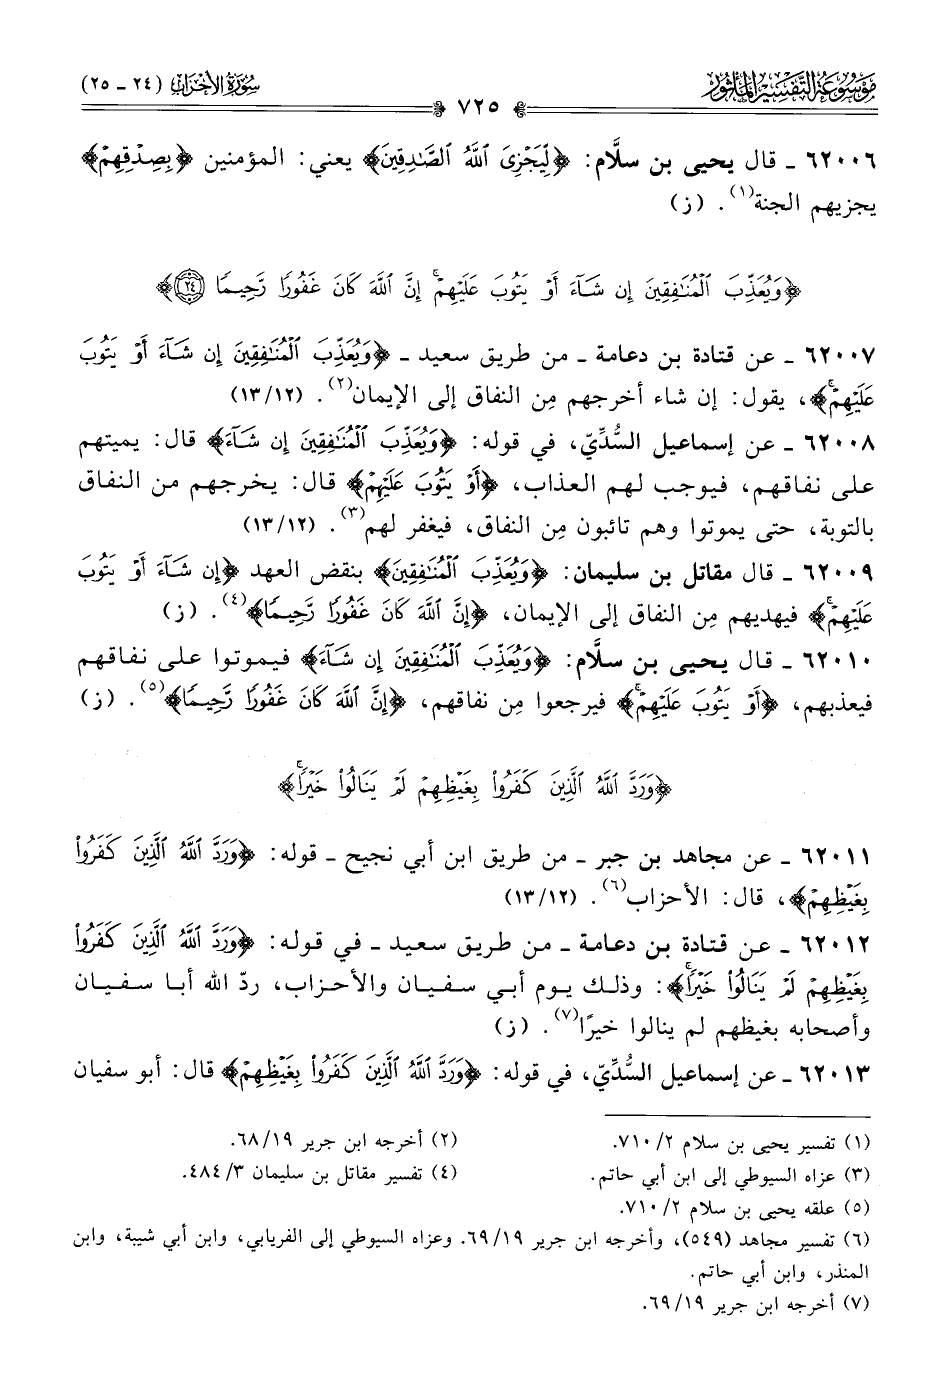 موسوعة التفسير المأثور
سورة الأحزاب (٢٤ - ٢٥)
٧٢٥
٦٢٠٠٦ - قال يحيى بن سلَّام: ﴿لِّيَجْزِىَ ٱللَّهُ ٱلصَّٰدِقِينَ﴾ يعني: المؤمنين ﴿بِصِدْقِهِمْ﴾
يجزيهم الجنة(١). (ز)
﴿وَيُعَذِّبَ ٱلْمُنَٰفِقِينَ إِن شَآءَ أَوْ يَتُوبَ عَلَيْهِمْ ۚ إِنَّ ٱللَّهَ كَانَ غَفُورًا رَّحِيمًا ۝٢٤﴾
٦٢٠٠٧ - عن قتادة بن دعامة - من طريق سعيد - ﴿وَيُعَذِّبَ ٱلْمُنَٰفِقِينَ إِن شَآءَ أَوْ يَتُوبَ
عَلَيْهِمْ ۚ﴾، يقول: إن شاء أخرجهم مِن النفاق إلى الإيمان(٢). (١٣/١٢)
٦٢٠٠٨ - عن إسماعيل السُّدِّيّ، في قوله: ﴿وَيُعَذِّبَ ٱلْمُنَٰفِقِينَ إِن شَآءَ﴾ قال: يميتهم
على نفاقهم، فيوجب لهم العذاب، ﴿أَوْ يَتُوبَ عَلَيْهِمْ﴾ قال: يخرجهم من النفاق
بالتوبة، حتى يموتوا وهم تائبون مِن النفاق، فيغفر لهم(٣). (١٣/١٢)
٦٢٠٠٩ - قال مقاتل بن سليمان: ﴿وَيُعَذِّبَ ٱلْمُنَٰفِقِينَ﴾ بنقض العهد ﴿إِن شَآءَ أَوْ يَتُوبَ
عَلَيْهِمْ ۚ﴾ فيهديهم مِن النفاق إلى الإيمان، ﴿إِنَّ ٱللَّهَ كَانَ غَفُورًا رَّحِيمًا﴾(٤). (ز)
٦٢٠١٠ - قال يحيى بن سلَّام: ﴿وَيُعَذِّبَ ٱلْمُنَٰفِقِينَ إِن شَآءَ﴾ فيموتوا على نفاقهم
فيعذبهم، ﴿أَوْ يَتُوبَ عَلَيْهِمْ ۚ﴾ فيرجعوا مِن نفاقهم، ﴿إِنَّ ٱللَّهَ كَانَ غَفُورًا رَّحِيمًا﴾(٥). (ز)
﴿وَرَدَّ ٱللَّهُ ٱلَّذِينَ كَفَرُوا۟ بِغَيْظِهِمْ لَمْ يَنَالُوا۟ خَيْرًا ۚ﴾
٦٢٠١١ - عن مجاهد بن جبر - من طريق ابن أبي نجيح - قوله: ﴿وَرَدَّ ٱللَّهُ ٱلَّذِينَ كَفَرُوا۟
بِغَيْظِهِمْ﴾، قال: الأحزاب(٦). (١٣/١٢)
٦٢٠١٢ - عن قتادة بن دعامة - من طريق سعيد - في قوله: ﴿وَرَدَّ ٱللَّهُ ٱلَّذِينَ كَفَرُوا۟
بِغَيْظِهِمْ لَمْ يَنَالُوا۟ خَيْرًا ۚ﴾: وذلك يوم أبي سفيان والأحزاب، ردّ الله أبا سفيان
وأصحابه بغيظهم لم ينالوا خيرًا(٧). (ز)
٦٢٠١٣ - عن إسماعيل السُّدِّيّ، في قوله: ﴿وَرَدَّ ٱللَّهُ ٱلَّذِينَ كَفَرُوا۟ بِغَيْظِهِمْ﴾ قال: أبو سفيان
(١) تفسير يحيى بن سلام ٧١٠/٢.
(٢) أخرجه ابن جرير ٦٨/١٩.
(٣) عزاه السيوطي إلى ابن أبي حاتم.
(٤) تفسير مقاتل بن سليمان ٤٨٤/٣.
(٥) علقه يحيى بن سلام ٧١٠/٢.
(٦) تفسير مجاهد (٥٤٩)، وأخرجه ابن جرير ٦٩/١٩. وعزاه السيوطي إلى الفريابي، وابن أبي شيبة، وابن
المنذر، وابن أبي حاتم.
(٧) أخرجه ابن جرير ٦٩/١٩.